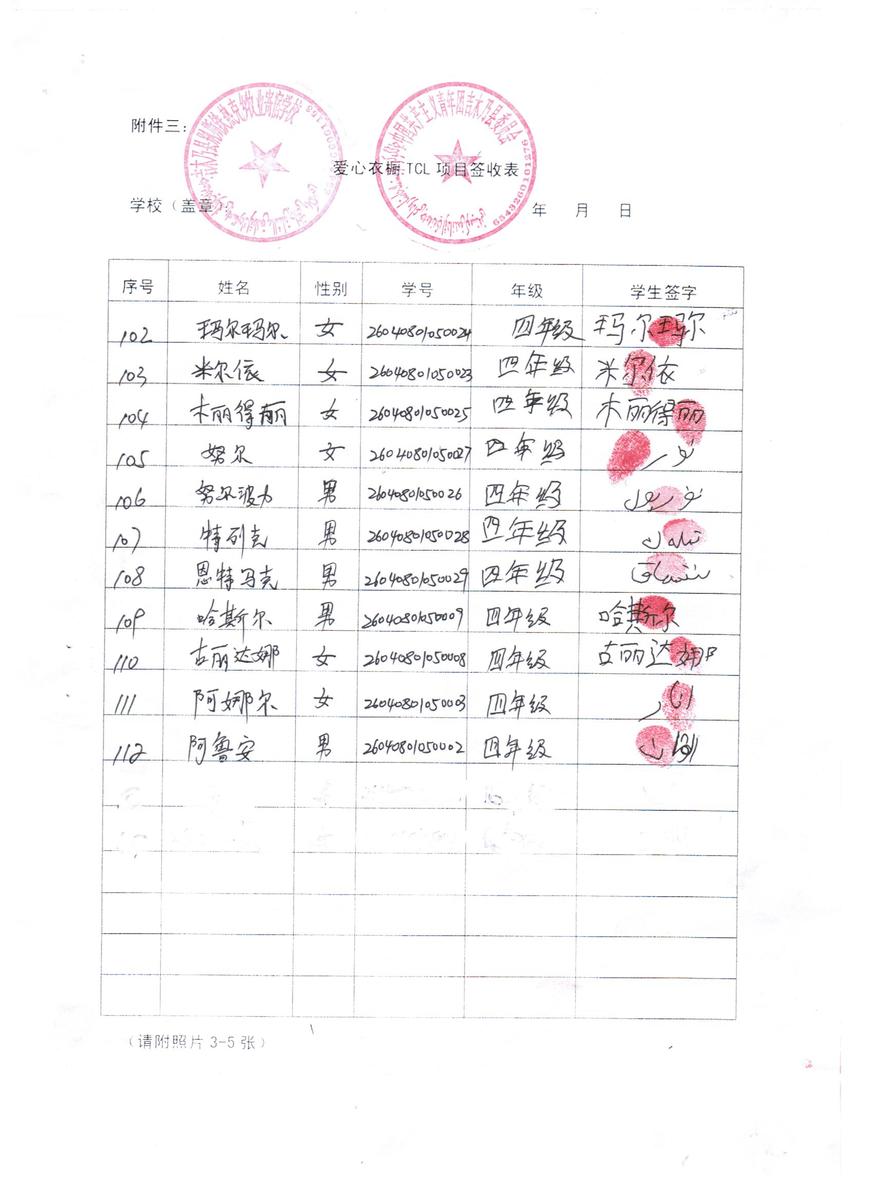 附件三：
爱心衣橱 TCL 项目签收表
学校（盖章）： 年 月 日
序号 姓名 性别 学号 年级 学生签字
102 玛尔玛尔 女 26040801050024 四年级 玛尔玛尔
103 米尔依 女 26040801050023 四年级 米尔依
104 木丽得丽 女 26040801050025 四年级 木丽得丽
105 努尔 女 26040801050027 四年级 نۇر
106 努尔波力 男 26040801050026 四年级
107 特列克 男 26040801050028 四年级
108 恩特马克 男 26040801050029 四年级
109 哈斯尔 男 26040801050009 四年级 哈斯尔
110 古丽达娜 女 26040801050008 四年级 古丽达娜
111 阿娜尔 女 26040801050003 四年级
112 阿鲁安 男 26040801050002 四年级
（请附照片 3-5 张）